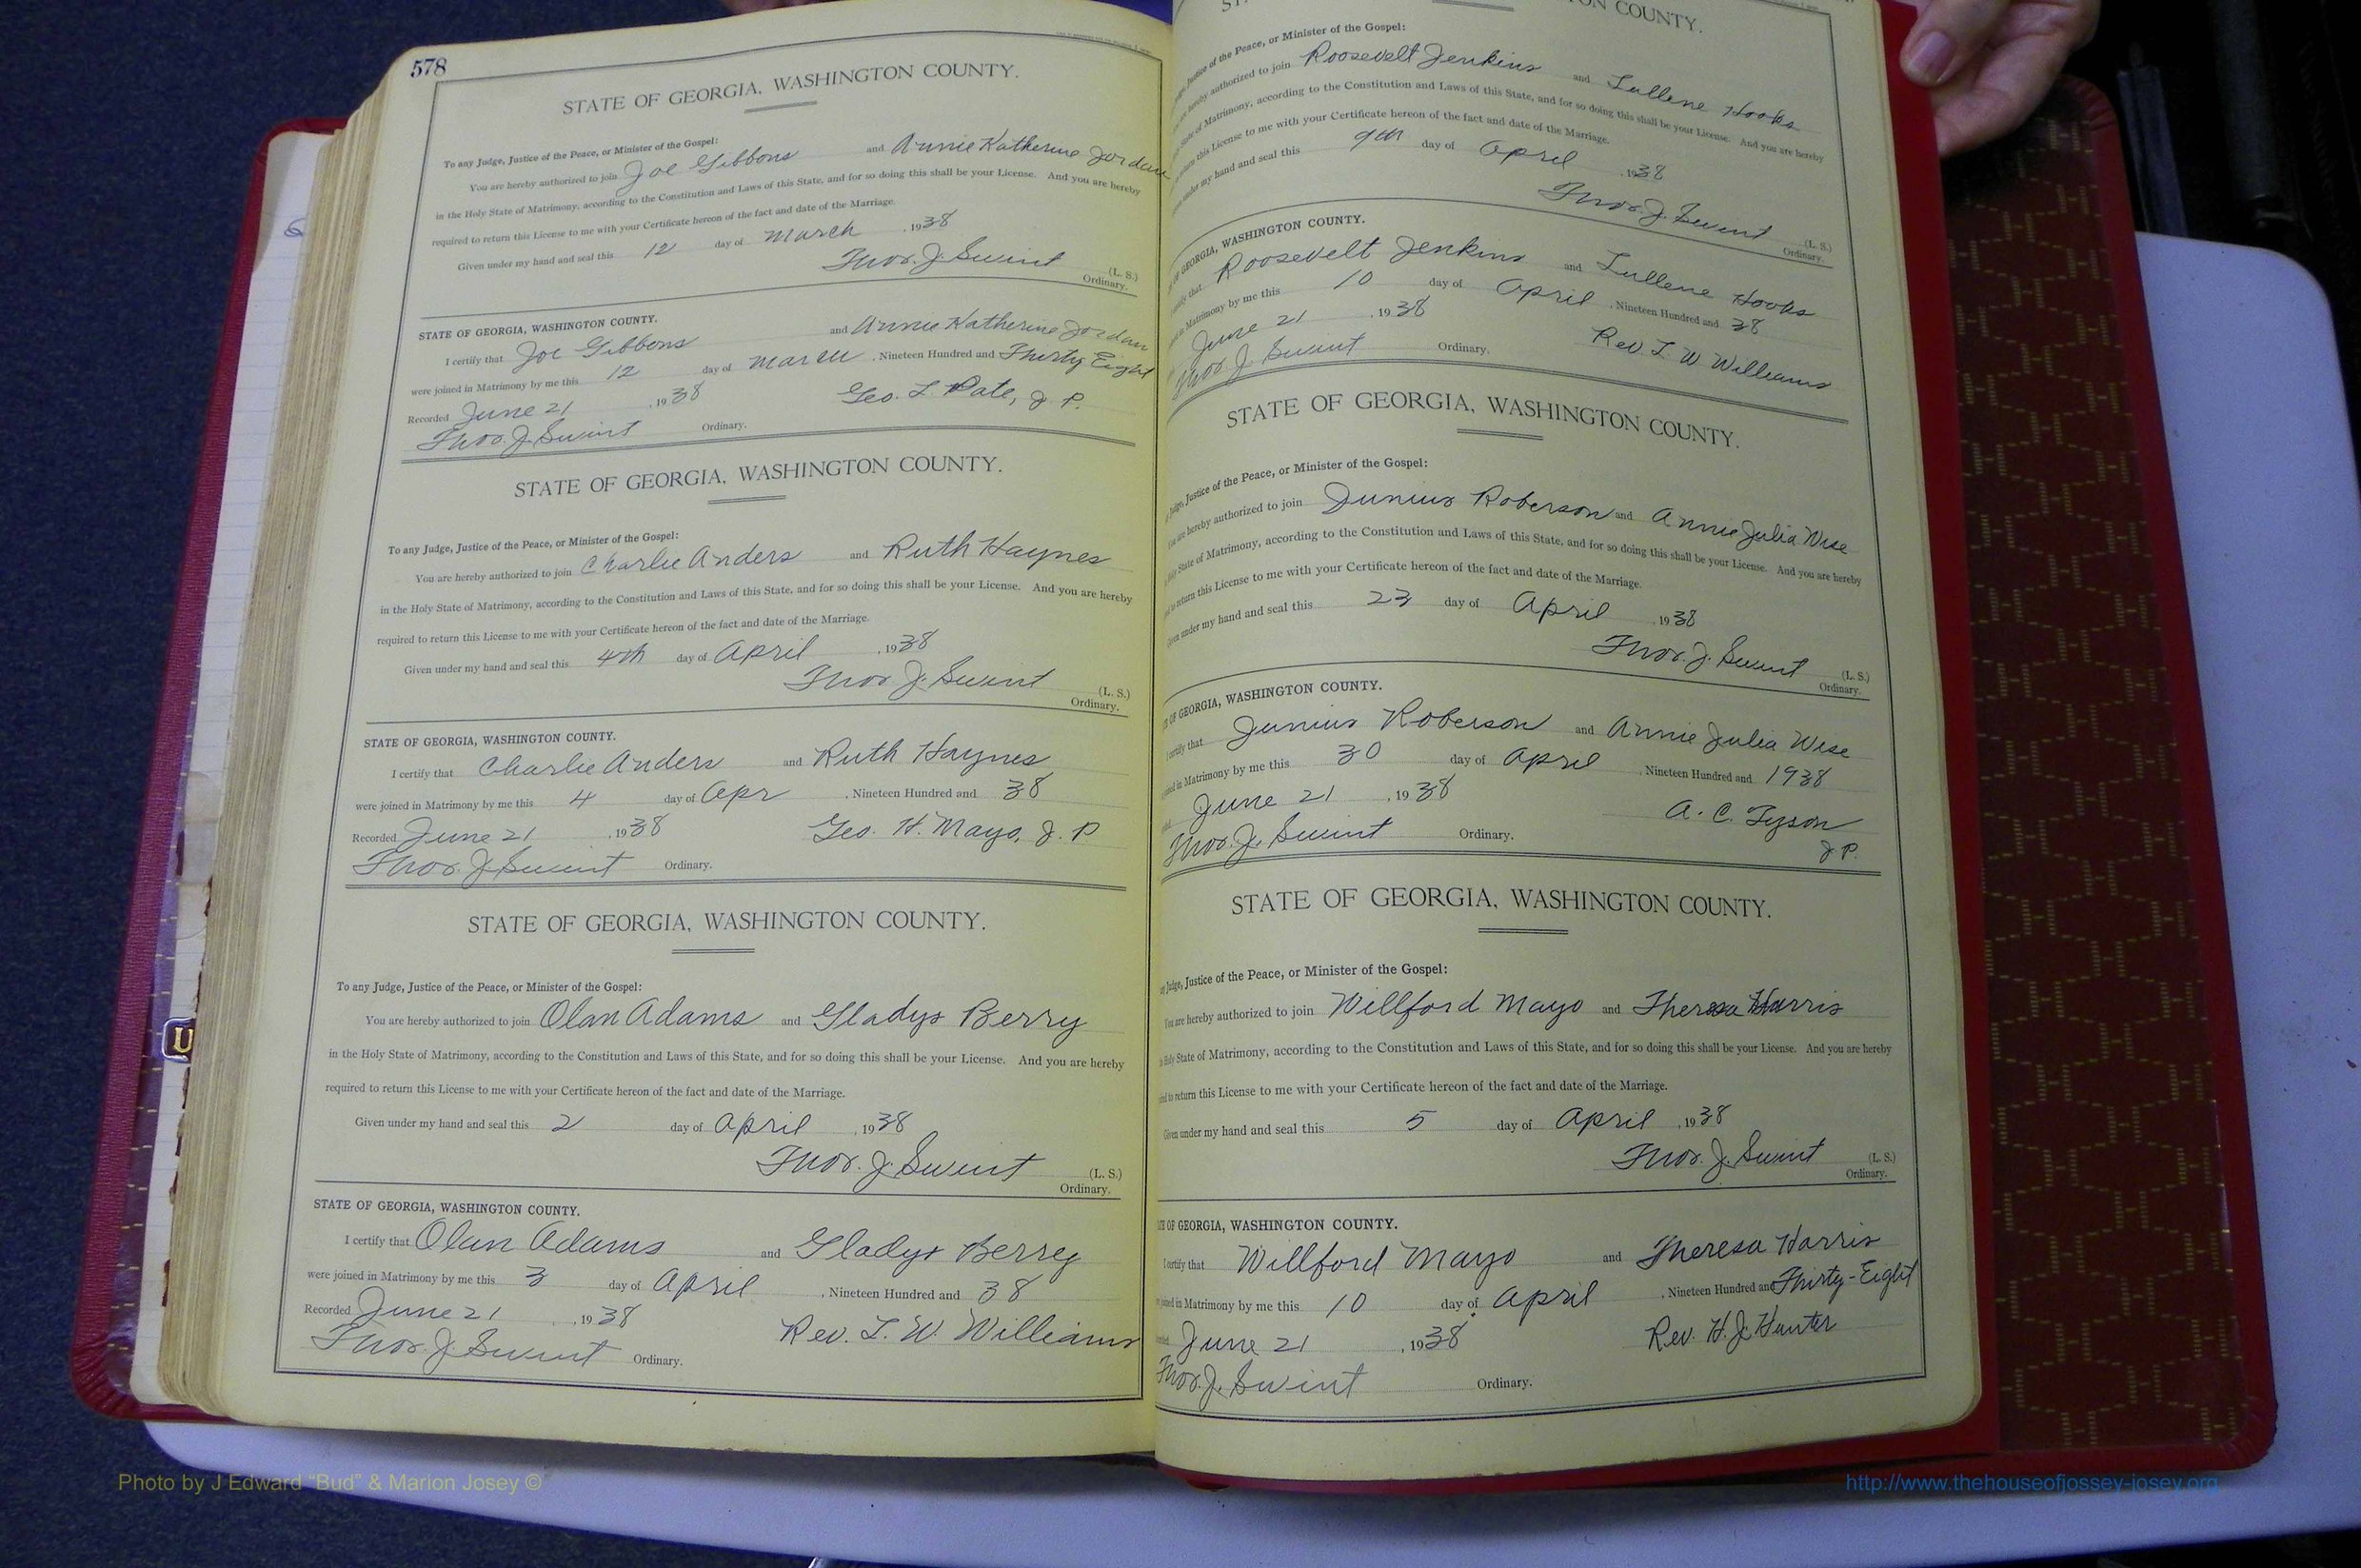 578
STATE OF GEORGIA, WASHINGTON COUNTY.
To any Judge, Justice of the Peace, or Minister of the Gospel:
You are hereby authorized to join Joe Gibbons and Annie Katherine Jordan
in the Holy State of Matrimony, according to the Constitution and Laws of this State, and for so doing this shall be your License. And you are hereby
required to return this License to me with your Certificate hereon of the fact and date of the Marriage.
Given under my hand and seal this 12 day of March , 1938
Thos. J. Swint (L. S.)
Ordinary.
STATE OF GEORGIA, WASHINGTON COUNTY.
I certify that Joe Gibbons and Annie Katherine Jordan
were joined in Matrimony by me this 12 day of March , Nineteen Hundred and Thirty Eight
Recorded June 21 , 1938 Geo. L. Pate, J. P.
Thos. J. Swint Ordinary.
STATE OF GEORGIA, WASHINGTON COUNTY.
To any Judge, Justice of the Peace, or Minister of the Gospel:
You are hereby authorized to join Charlie Anders and Ruth Haynes
in the Holy State of Matrimony, according to the Constitution and Laws of this State, and for so doing this shall be your License. And you are hereby
required to return this License to me with your Certificate hereon of the fact and date of the Marriage.
Given under my hand and seal this 4th day of April , 1938
Thos. J. Swint (L. S.)
Ordinary.
STATE OF GEORGIA, WASHINGTON COUNTY.
I certify that Charlie Anders and Ruth Haynes
were joined in Matrimony by me this 4 day of Apr , Nineteen Hundred and 38
Recorded June 21 , 1938 Geo. H. Mayo, J. P
Thos. J. Swint Ordinary.
STATE OF GEORGIA, WASHINGTON COUNTY.
To any Judge, Justice of the Peace, or Minister of the Gospel:
You are hereby authorized to join Olan Adams and Gladys Berry
in the Holy State of Matrimony, according to the Constitution and Laws of this State, and for so doing this shall be your License. And you are hereby
required to return this License to me with your Certificate hereon of the fact and date of the Marriage.
Given under my hand and seal this 2 day of April , 1938
Thos. J. Swint (L. S.)
Ordinary.
STATE OF GEORGIA, WASHINGTON COUNTY.
I certify that Olan Adams and Gladys Berry
were joined in Matrimony by me this 3 day of April , Nineteen Hundred and 38
Recorded June 21 , 1938 Rev. L. W. Williams
Thos. J. Swint Ordinary.
COUNTY.
Justice of the Peace, or Minister of the Gospel:
hereby authorized to join Roosevelt Jenkins and Lullene Hooks
State of Matrimony, according to the Constitution and Laws of this State, and for so doing this shall be your License. And you are hereby
return this License to me with your Certificate hereon of the fact and date of the Marriage.
under my hand and seal this 9th day of April , 1938
Thos. J. Swint (L. S.)
Ordinary.
GEORGIA, WASHINGTON COUNTY.
that Roosevelt Jenkins and Lullene Hooks
in Matrimony by me this 10 day of April , Nineteen Hundred and 38
June 21 , 1938 Rev L W Williams
Thos. J. Swint Ordinary.
STATE OF GEORGIA, WASHINGTON COUNTY.
Judge, Justice of the Peace, or Minister of the Gospel:
You are hereby authorized to join Junius Roberson and Annie Julia Wise
State of Matrimony, according to the Constitution and Laws of this State, and for so doing this shall be your License. And you are hereby
to return this License to me with your Certificate hereon of the fact and date of the Marriage.
Given under my hand and seal this 23 day of April , 1938
Thos. J. Swint (L. S.)
Ordinary.
OF GEORGIA, WASHINGTON COUNTY.
I certify that Junius Roberson and Annie Julia Wise
joined in Matrimony by me this 30 day of April , Nineteen Hundred and 1938
June 21 , 1938 A. C. Tyson
Thos. J. Swint Ordinary. J. P.
STATE OF GEORGIA, WASHINGTON COUNTY.
Judge, Justice of the Peace, or Minister of the Gospel:
You are hereby authorized to join Willford Mayo and Theresa Harris
Holy State of Matrimony, according to the Constitution and Laws of this State, and for so doing this shall be your License. And you are hereby
to return this License to me with your Certificate hereon of the fact and date of the Marriage.
Given under my hand and seal this 5 day of April , 1938
Thos. J. Swint (L. S.)
Ordinary.
OF GEORGIA, WASHINGTON COUNTY.
I certify that Willford Mayo and Theresa Harris
joined in Matrimony by me this 10 day of April , Nineteen Hundred and Thirty-Eight
June 21 , 1938 Rev. H. J. Hunter
Thos. J. Swint Ordinary.
Photo by J Edward "Bud" & Marion Josey ©
http://www.thehouseofjossey-josey.org